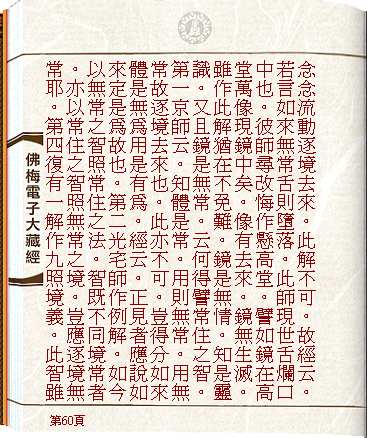 念念流動逐境去來。此解不可。故經云。
若言如來無常舌則墮落。此師現世舌爛口
中也。彼師尋改悔作懸高堂。譬如鏡在高
堂萬像現鏡中矣。像有去來。鏡無生滅。
雖作此解猶在不免難。鏡是無情。知是靈
識。又且鏡是無常。云何得譬常住之智。
第一京師云。知體是常。用則無常。用無
常故逐境去來也。此亦不可。豈得分如來
體是無爲用是有爲。經云。正見者應說如
來定是爲故也。第二光宅師作例解。如今
以無常之智照常住之法。智既不同境常者
。亦以常住之智照無常之境。豈應逐境無
常耶。第四復有一解作九照境義。此智雖
佛梅電子大藏經
第60頁